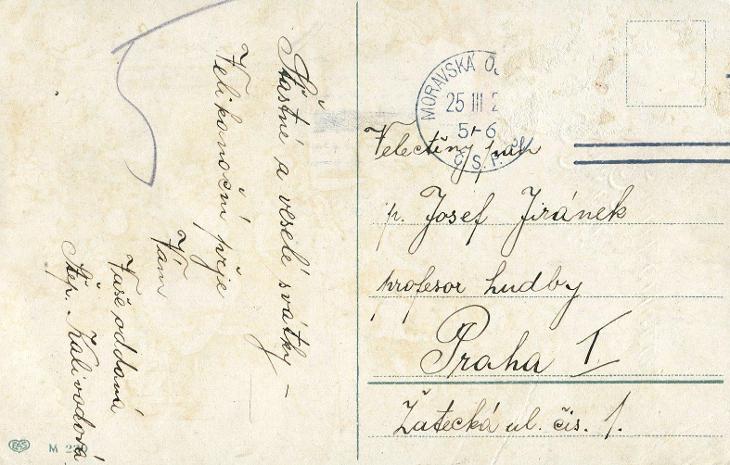 Šťastné a veselé svátky –
Velikonoční přeje
Vám
Vaše oddaná
Štěp. Kalivodová
MORAVSKÁ O
25 III 2
5-6
Č.S.P.
Velectěný pán
p. Josef Jiránek
profesor hudby
Praha I
Žatecká ul. čís. 1.
M 2